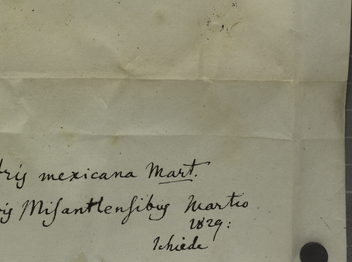 bris mexicana Mart.
ris Misantlensibus Martio
1829:
Schiede